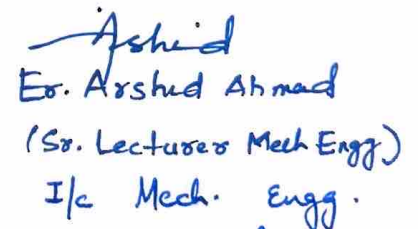 Arshid
Er. Arshid Ahmad
(Sr. Lecturer Mech Engg)
I/c Mech. Engg.